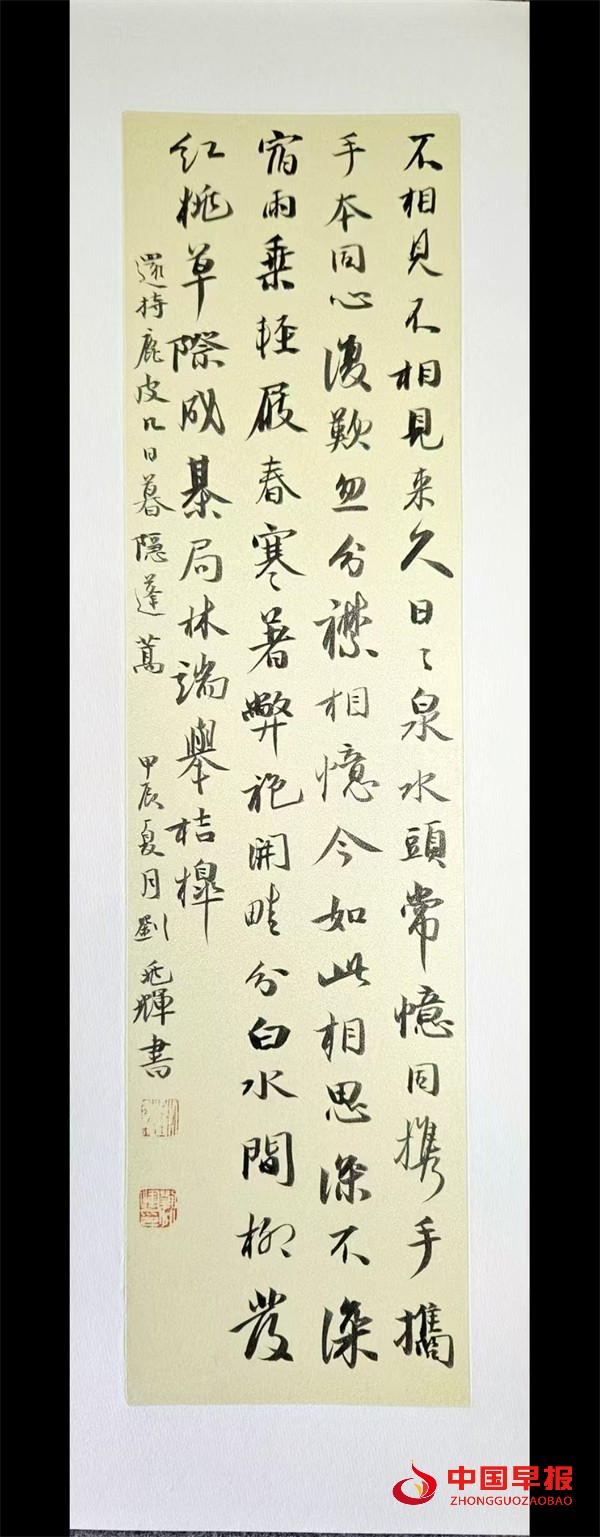 不相見不相見来久日〻泉水頭常憶同携手攜
手本同心復歎忽分襟相憶今如此相思深不深
宿雨乗軽屐春寒著弊袍開畦分白水間柳發
红桃草際成棊局林端舉桔槔
還持鹿皮几日暮隱蓬蒿 甲辰夏月劉兆輝書
中国早报
ZHONGGUOZAOBAO